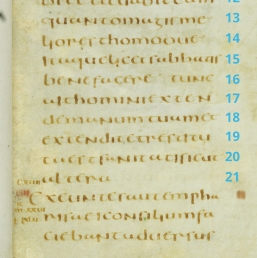 quantomagisme 13
lioresthomoove 14
itaquelicetsabbatis 15
benefacere tunc 16
aithominiexten 17
demanumtuamet 18
extenditetrestitu 19
taestsanitatisicut 20
altera 21
exeuntesautempha
risaeiconsiliumfa
ciebantadversus